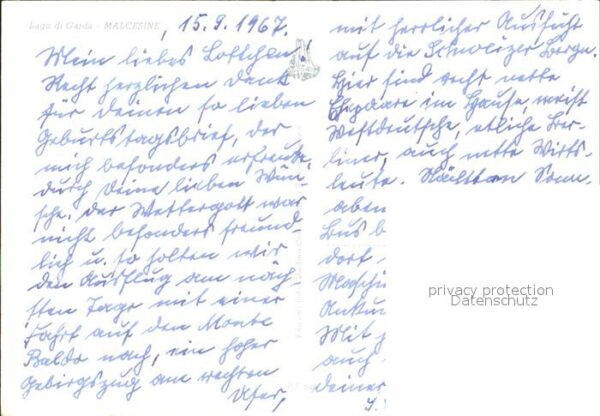 Lago di Garda - MALCESINE
, 15.9.1967.
Mein liebes Lottchen!
Recht herzlichen Dank
für Deinen so lieben
Geburtstagsbrief, der
mich besonders erfreute,
durch Deine lieben Wün-
sche. Der Wettergott war
nicht besonders freund-
lich u. so holten wir
den Ausflug am näch-
sten Tage mit einer
Fahrt auf den Monte
Baldo nach, ein hoher
Gebirgszug am rechten
Ufer,
mit herrlicher Aussicht
auf die Schweizer Berge.
Hier sind recht nette
Ehepaare im Hause, meist
Westdeutsche, etliche Ber-
liner, auch nette Wirts-
leute. Nächsten Sonn
aben
Bus b
dorf
Maschi
Ankun
Mit
auch
Deiner
privacy protection
Datenschutz